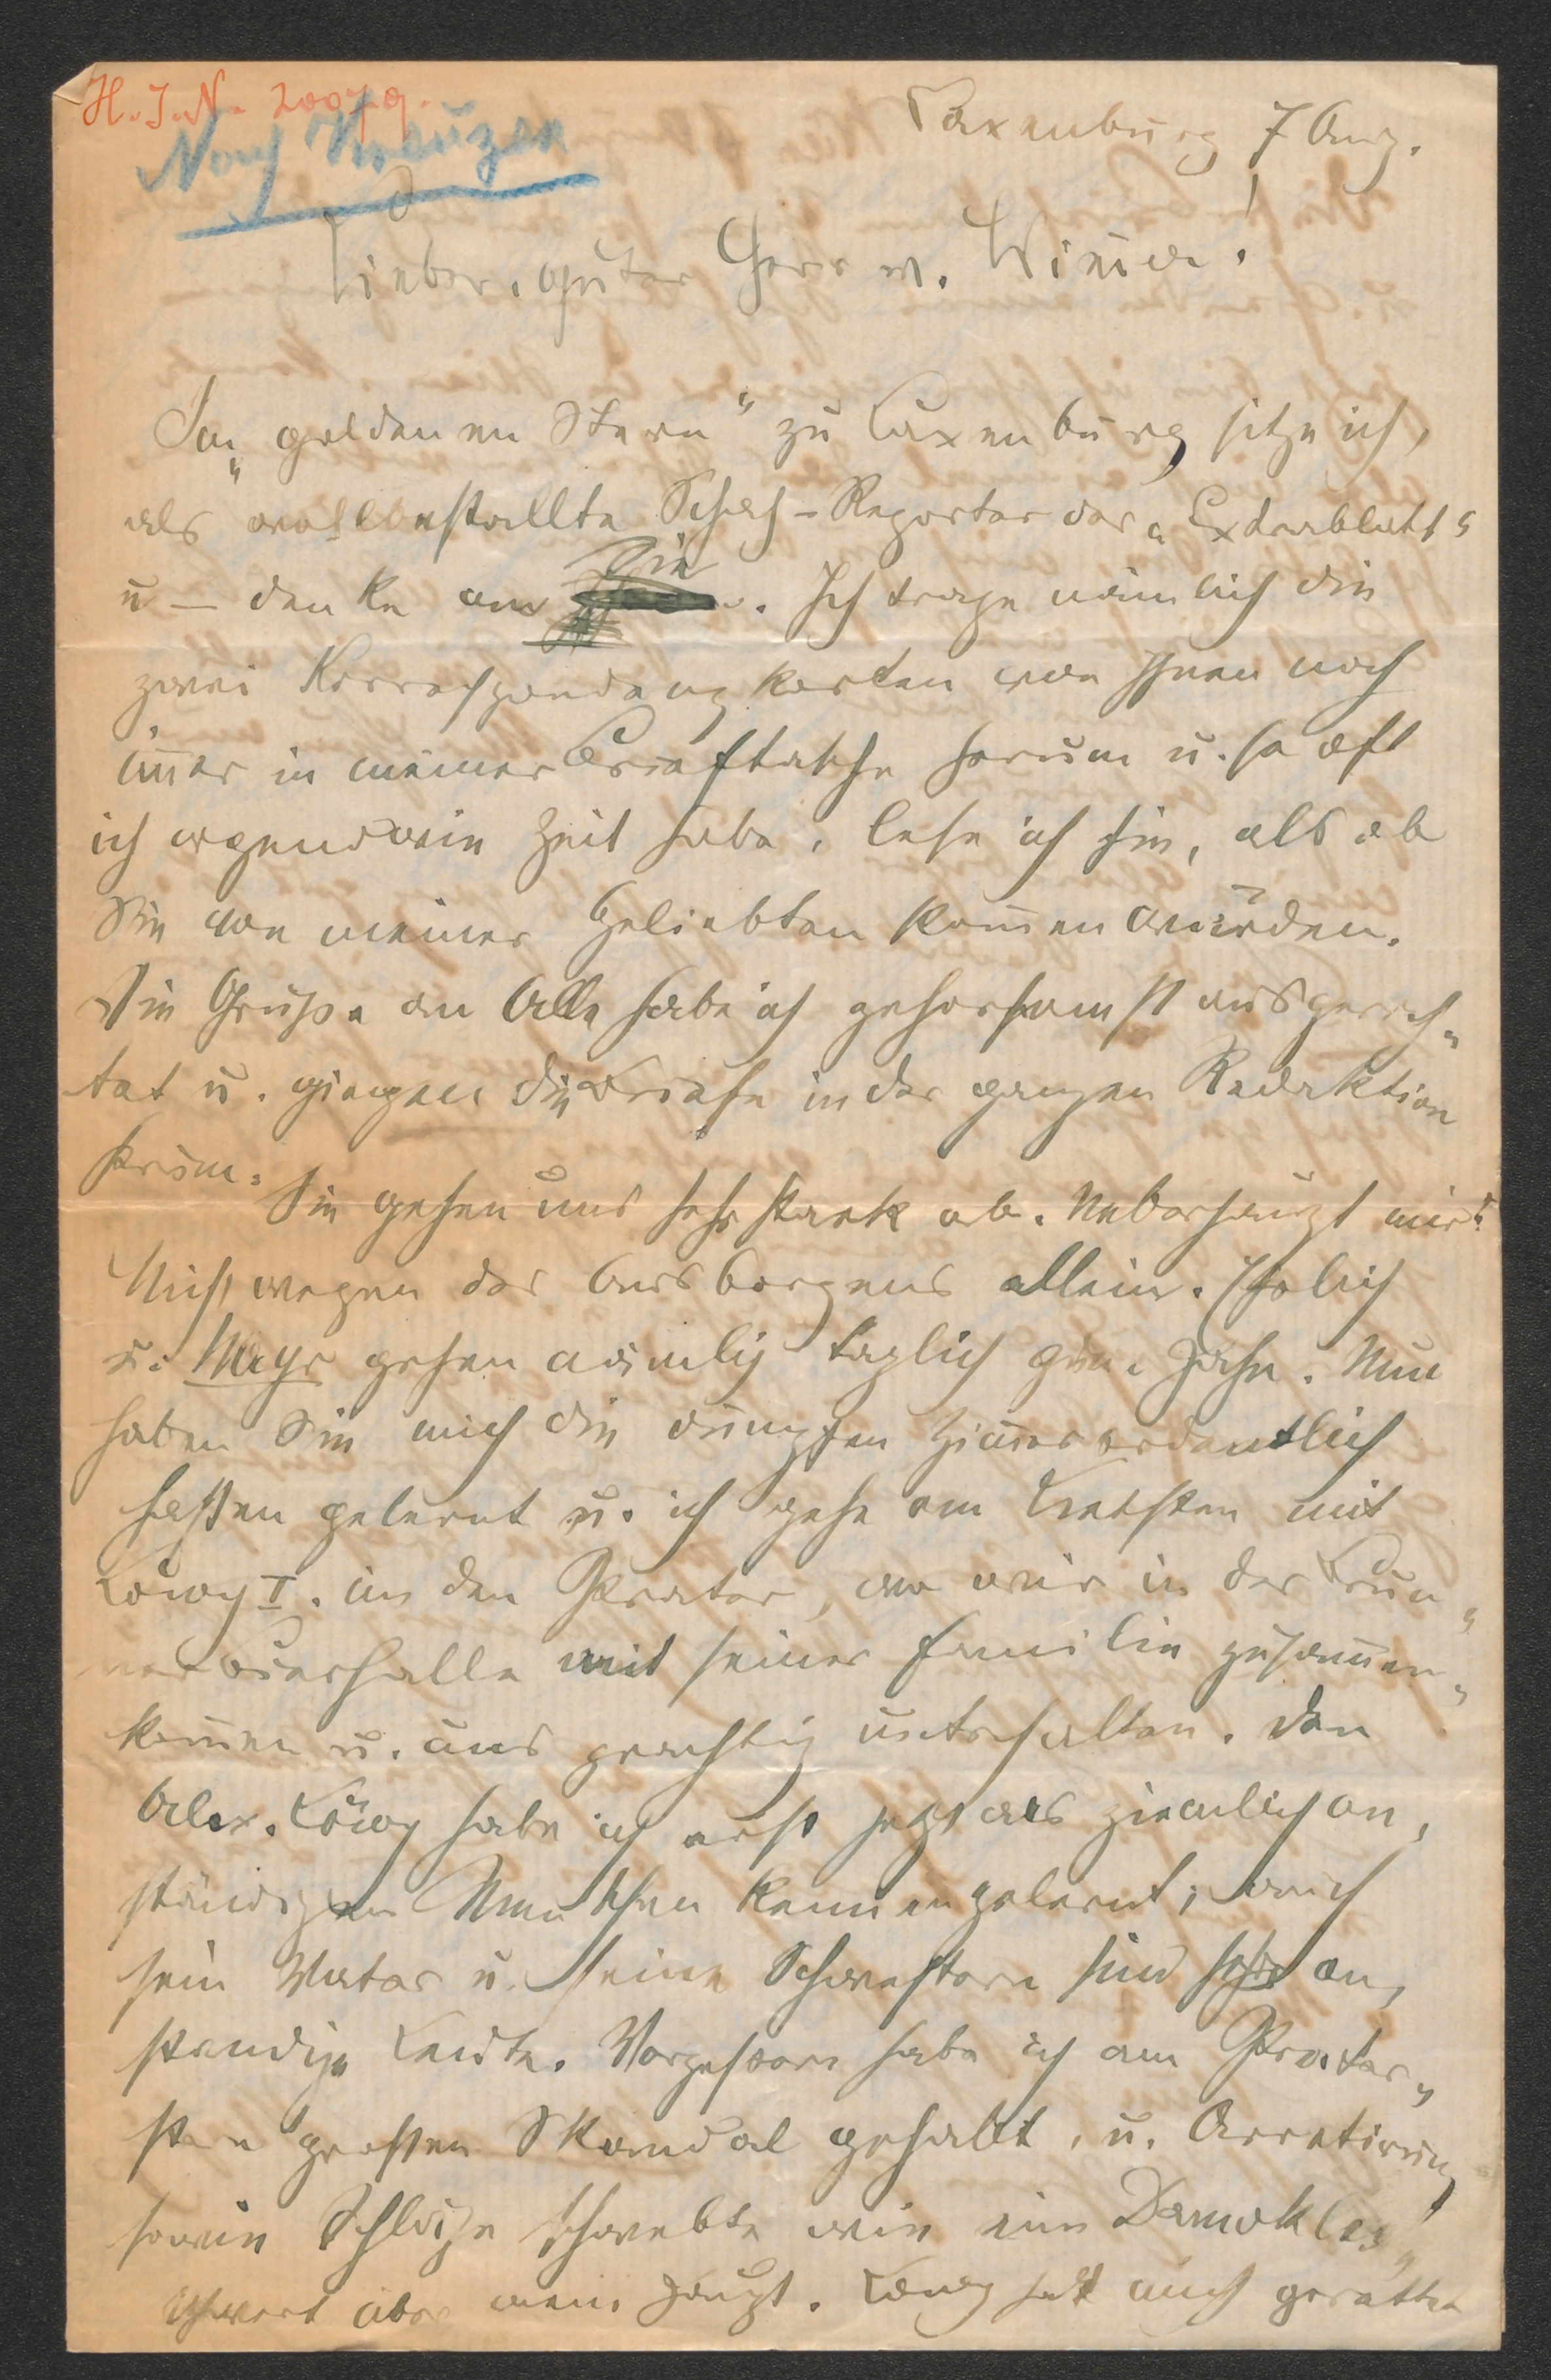 H. I. N. 20079.
Nach Kreuzen
Laxenburg 7 Aug.
Lieber, guter Herr v. Winer!
Im „goldenen Stern" zu Laxenburg sitze ich,
als wohlbestallte Schach-Reporter des „Extrablatt"
u — denke an Sie. Ich trage nämlich die
zwei Korrespondenzkarten von Ihnen noch
im̄er in meiner Brieftasche herum u. so oft
ich irgendwie Zeit habe, lese ich sie, als ob
Sie von meiner Geliebten kom̄en würden.
Die Grüße an Alle habe ich gehorsamst ausgerich-
tet u. giengen die Briefe in der ganzen Redaktion
herum. Sie gehen uns sehr stark ab. Ueberhaupt mir!
Nicht wegen des Ausborgens allein.
u. Mayr gehen nämlich täglich zum . Nun
haben Sie mich die dumpfen Zim̄er ordentlich
hassen gelernt u. ich gehe am Liebsten mit
Löwy I. in den Prater, wo wir in der
bierhalle mit seiner Familie zusam̄en-
kom̄en u. uns prächtig unterhalten. Den
Alex. Löwy habe ich erst jetzt als ziemlich an-
ständigen Menschen kennen gelernt; auch
sein Vater u. seine Schwestern sind sehr an-
ständige Leute. Vorgestern habe ich am Prater-
stern großen Skandal gehabt, u. Arretirung
sowie Schläge schwebte wie ein Damokles-
schwert über mein Haupt. Löwy hat mich gerettet